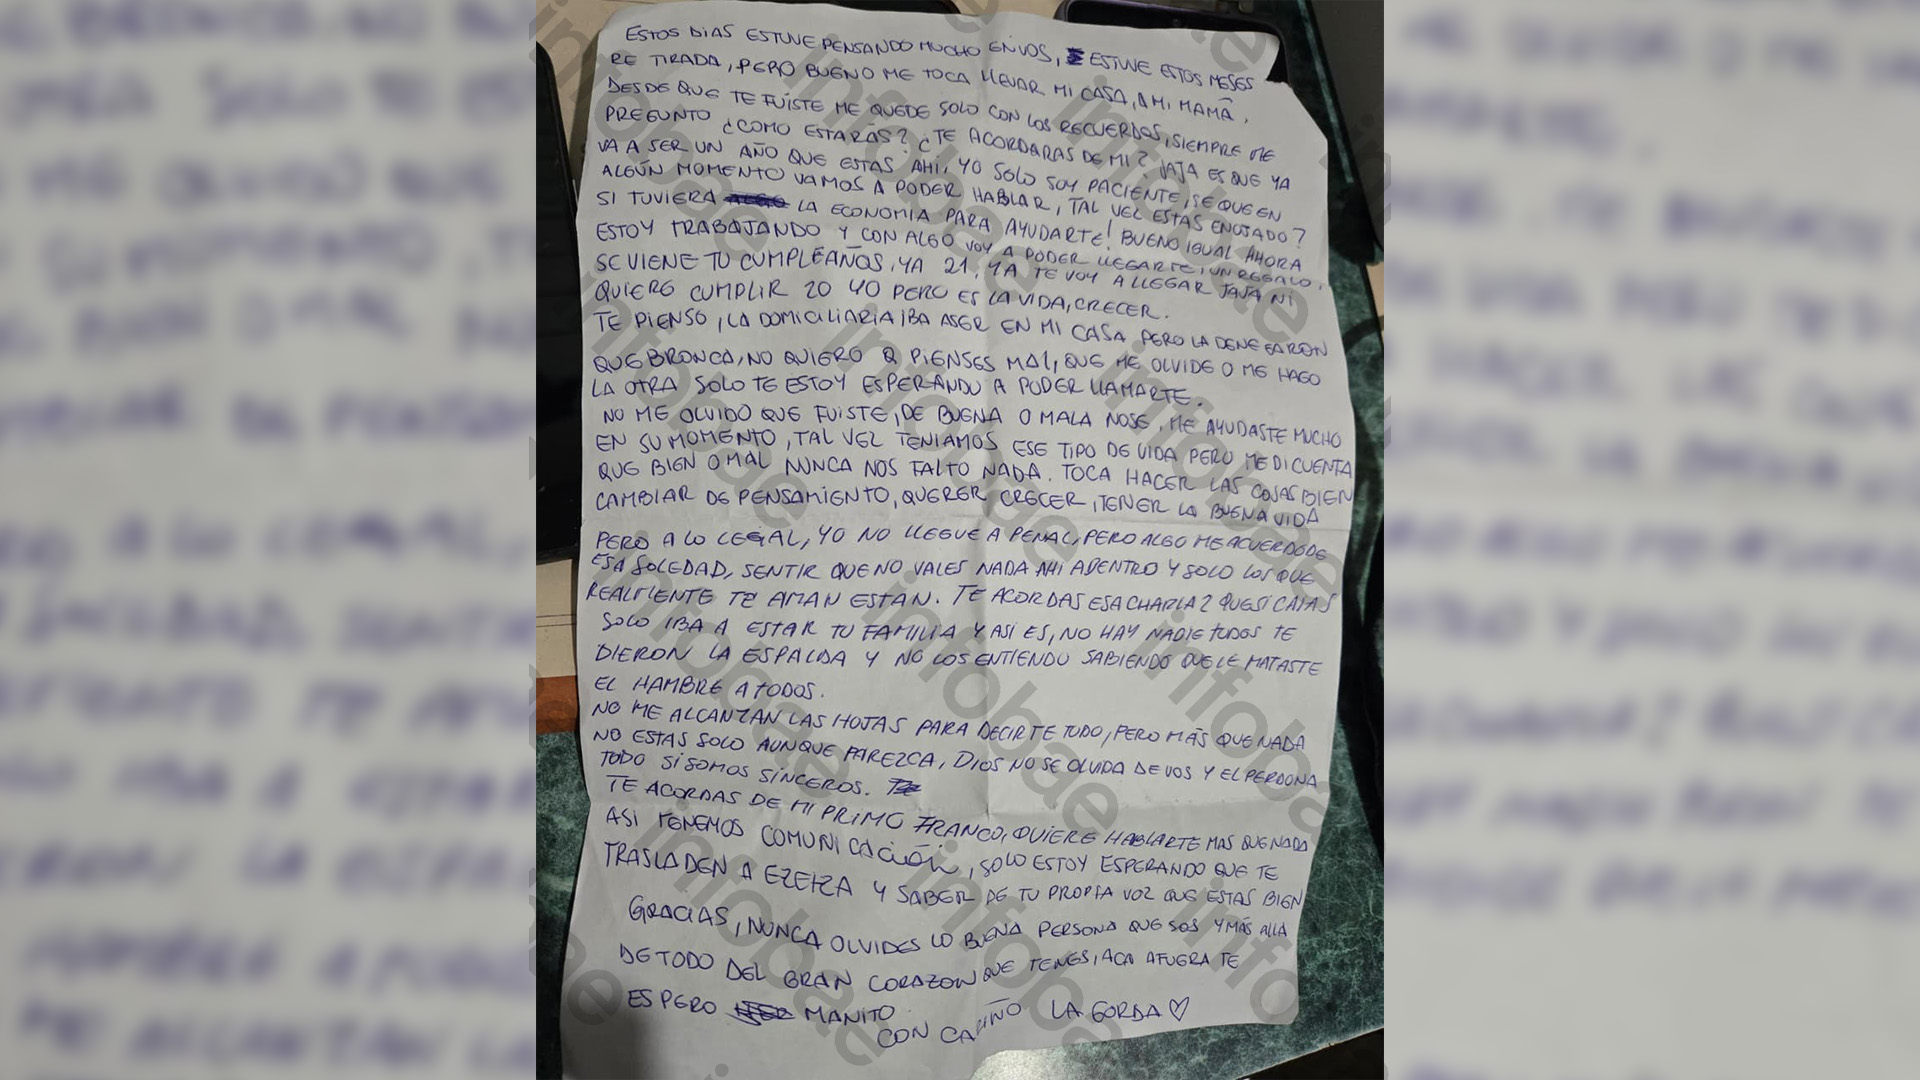 ESTOS DIAS ESTUVE PENSANDO MUCHO EN VOS, ESTUVE ESTOS MESES
RE TIRADA, PERO BUENO ME TOCA LLEVAR MI CASA, A MI MAMÁ,
DESDE QUE TE FUISTE ME QUEDE SOLO CON LOS RECUERDOS, SIEMPRE ME
PREGUNTO ¿COMO ESTARÁS? ¿TE ACORDARAS DE MI? JAJA ES QUE YA
VA A SER UN AÑO QUE ESTAS AHI, YO SOLO SOY PACIENTE, SE QUE EN
ALGÚN MOMENTO VAMOS A PODER HABLAR, TAL VEL ESTAS ENOJADO?
SI TUVIERA LA ECONOMIA PARA AYUDARTE! BUENO IGUAL AHORA
ESTOY TRABAJANDO Y CON ALGO VOY A PODER LLEGARTE, UN REGALO,
SE VIENE TU CUMPLEAÑOS, YA 21, YA TE VOY A LLEGAR JAJA NI
QUIERO CUMPLIR 20 YO PERO ES LA VIDA, CRECER.
TE PIENSO, LA DOMICILIARIA IBA ASER EN MI CASA PERO LA DENEGARON
QUE BRONCA, NO QUIERO Q PIENSES MAL, QUE ME OLVIDE O ME HAGO
LA OTRA SOLO TE ESTOY ESPERANDO A PODER LLAMARTE.
NO ME OLVIDO QUE FUISTE, DE BUENA O MALA NOSE, ME AYUDASTE MUCHO
EN SU MOMENTO, TAL VEL TENIAMOS ESE TIPO DE VIDA PERO ME DI CUENTA
QUE BIEN O MAL NUNCA NOS FALTO NADA. TOCA HACER LAS COSAS BIEN
CAMBIAR DE PENSAMIENTO, QUERER CRECER, TENER LA BUENA VIDA
PERO A LO LEGAL, YO NO LLEGUE A PENAL, PERO ALGO ME ACUERDO DE
ESA SOLEDAD, SENTIR QUE NO VALES NADA AHI ADENTRO Y SOLO LOS QUE
REALMENTE TE AMAN ESTÁN. TE ACORDAS ESA CHARLA? QUE SI CAIAS
SOLO IBA A ESTAR TU FAMILIA Y ASI ES, NO HAY NADIE TODOS TE
DIERON LA ESPALDA Y NO LOS ENTIENDO SABIENDO QUE LE MATASTE
EL HAMBRE A TODOS.
NO ME ALCANZAN LAS HOJAS PARA DECIRTE TODO, PERO MÁS QUE NADA
NO ESTAS SOLO AUNQUE PAREZCA, DIOS NO SE OLVIDA DE VOS Y EL PERDONA
TODO SI SOMOS SINCEROS.
TE ACORDAS DE MI PRIMO FRANCO, QUIERE HABLARTE MAS QUE NADA
ASI TENEMOS COMUNICACIÓN, SOLO ESTOY ESPERANDO QUE TE
TRASLADEN A EZEIZA Y SABER DE TU PROPIA VOZ QUE ESTAS BIEN
GRACIAS, NUNCA OLVIDES LO BUENA PERSONA QUE SOS Y MÁS ALLA
DE TODO DEL GRAN CORAZON QUE TENES, ACA AFUERA TE
ESPERO MANITO
CON CARIÑO LA GORDA ♡
infobae